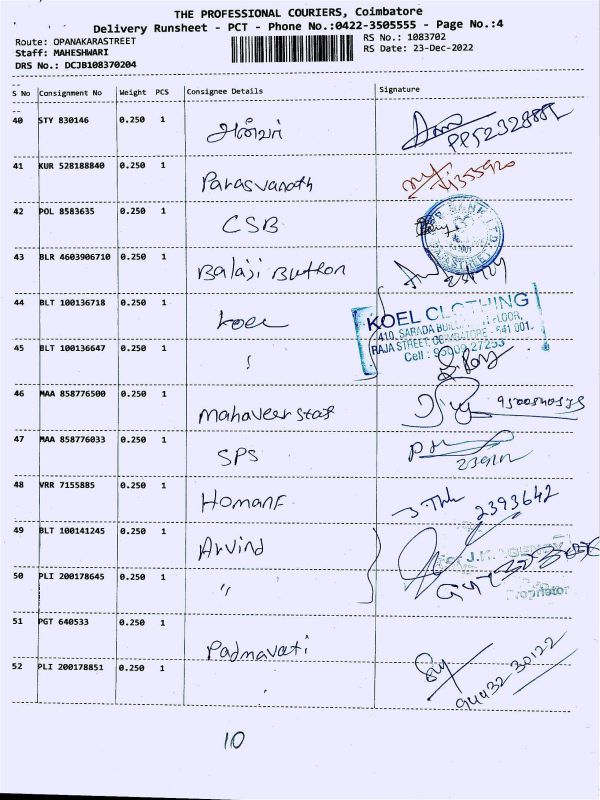 THE PROFESSIONAL COURIERS, Coimbatore
Delivery Runsheet - PCT - Phone No.:0422-3505555 - Page No.:4
Route: OPANAKARASTREET
RS No.: 1083702
Staff: MAHESHWARI
RS Date: 23-Dec-2022
DRS No.: DCJB108370204
S No Consignment No Weight PCS Consignee Details Signature
40 STY 830146 0.250 1
41 KUR 528188840 0.250 1 Parasvanath
42 POL 8583635 0.250 1 CSB
43 BLR 4603906710 0.250 1 Balaji Button
44 BLT 100136718 0.250 1 Koel
KOEL CLOTHING
410, SARADA FLOOR,
RAJA STREET, COIMBATORE - 641 001.
Cell : 95009 27253
45 BLT 100136647 0.250 1
46 MAA 858776500 0.250 1 mahaveer star
47 MAA 858776033 0.250 1 SPS
48 VRR 7155885 0.250 1 2393642
49 BLT 100141245 0.250 1 Arvind
50 PLI 200178645 0.250 1 "
Proprietor
51 PGT 640533 0.250 1 Padmavati
52 PLI 200178851 0.250 1 94432 30122
10